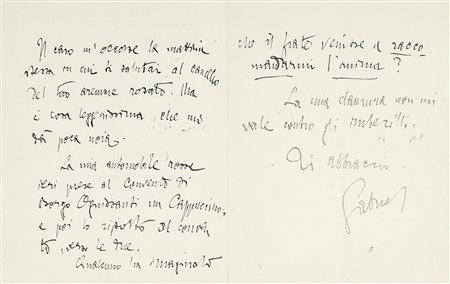 Il caso m'occorse la mattina
stessa in cui ti salutai al cancello
del tuo rosato. Ma
è cosa leggerissima, che mi
dà poca noia.
La mia automobile rossa
ieri prese al Convento di
Borgo Ognissanti un Cappuccino,
e poi lo riportò al conven
to, verso le due.
Qualcuno ha imaginato
che il frate venisse a racco
mandarmi l'anima?
La mia clausura non mi
vale contro gli imbecilli.
Ti abbraccio.
Gabriel